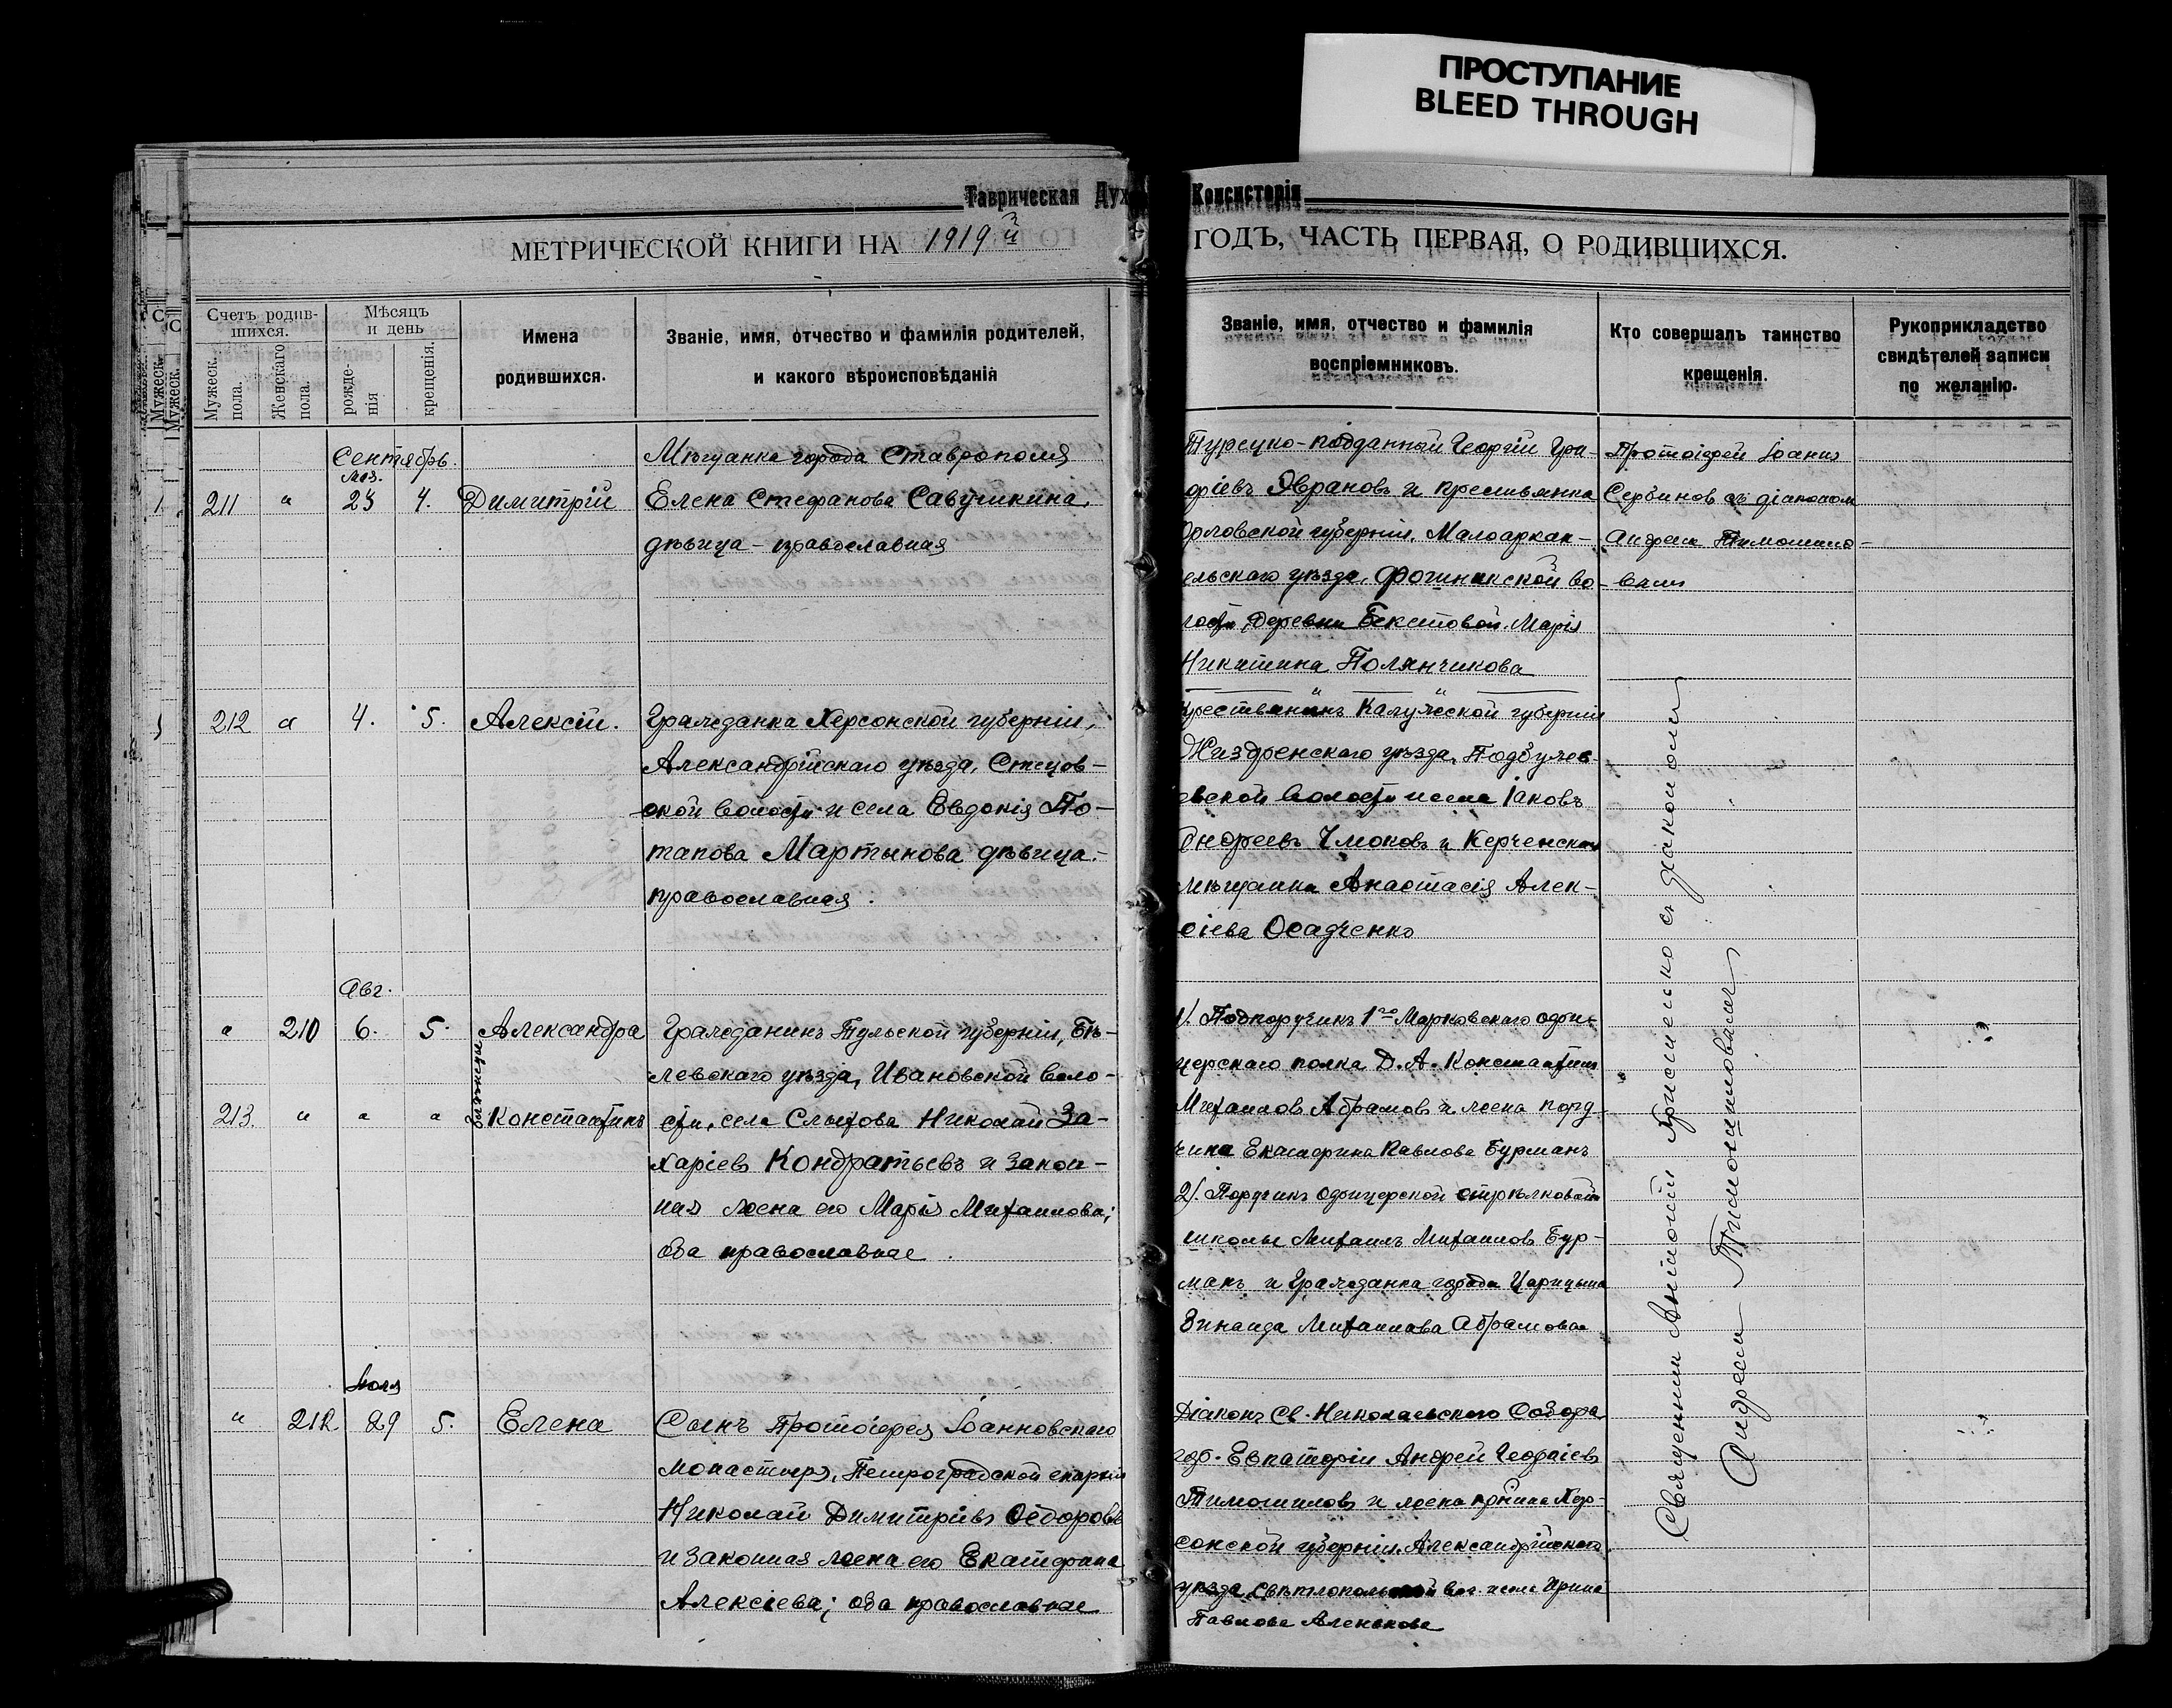 ПРОСТУПАНИЕ
BLEED THROUGH
Таврическая Дух
Консисторія
МЕТРИЧЕСКОЙ КНИГИ НА 1919й
ГОДЪ, ЧАСТЬ ПЕРВАЯ, О РОДИВШИХСЯ.
Счетъ родив-
шихся.
Мужеск. пола.
Женскаго пола.
Мѣсяцъ
и день
рожде-
нія
крещенія.
Имена
родившихся.
Званіе, имя, отчество и фамилія родителей,
и какого вѣроисповѣданія
Званіе, имя, отчество и фамилія
воспріемниковъ.
Кто совершалъ таинство
крещенія.
Рукоприкладство
свидѣтелей записи
по желанію.
Сентябрь.
211 " 23 4. Димитрій
Мѣщанка города Ставрополя
Елена Стефанова Савушкина,
дѣвица - православная
Турецко-подданный Георгій Гри-
горіевъ Явранов и крестьянка
Орловской губерніи, Малоархан-
ельскаго уѣзда, во-
лости, деревни Марія
Никитина Полянчикова
Протоіерей Іоаннъ
Сербинов съ діакономъ
Андреем Тимошило-
вымъ
212 " 4. 5. Алексій.
Гражданка Херсонской губерніи,
Александрійскаго уѣзда, Стецов-
ской волости и села Евдокія По-
тапова Мартынова дѣвица.-
православная.
Крестьянинъ Калужской губерніи
Жиздренскаго уѣзда, Подбужев-
евской волости и села Іаковъ
Андреевъ Чмоковъ и Керченская
мѣщанка Анастасія Алек-
сіева Осадченко
Авг.
" 210 6. 5. Александра
близнецы
213. " " " Константинъ
Гражданинъ Тульской губерніи, Бѣ-
левскаго уѣзда, Ивановской воло-
сти, села Николай За-
харіев Кондратьевъ и закон-
ная жена его Марія Михаилова;
оба православные.
1/. Подпоручикъ 1го Марковскаго офи-
церскаго полка Д. А. Константинъ
Михаилов Абрамов и жена пору-
чика Екатерина Павлова Бурманъ
2/. Поручикъ офицерской стрѣлковой
школы Михаилъ Михаилов Бур-
манъ и гражданка города Царицына
Зинаида Михаилова Абрамова
Священник Антоній Грисненко съ діакономъ
Андреем Тимошиловымъ
Іюля
" 212 29 5. Елена
Сынъ Протоіерея Іоанновскаго
монастыря, Петроградской епархіи
Николай Димитріевъ Ѳедоровъ
и законная жена его Екатерина
Алексіева; оба православные
Діаконъ Св. Николаевского Собора
гор. Евпаторіи Андрей Георгіевъ
Тимошилов и жена Хер-
сонской губерніи, Александрійскаго
уѣзда, Свѣтлопольской вол. и села Ирина
Павлова Аленькова